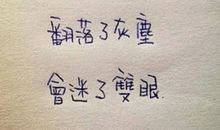 翻落了灰塵
會迷了雙眼.